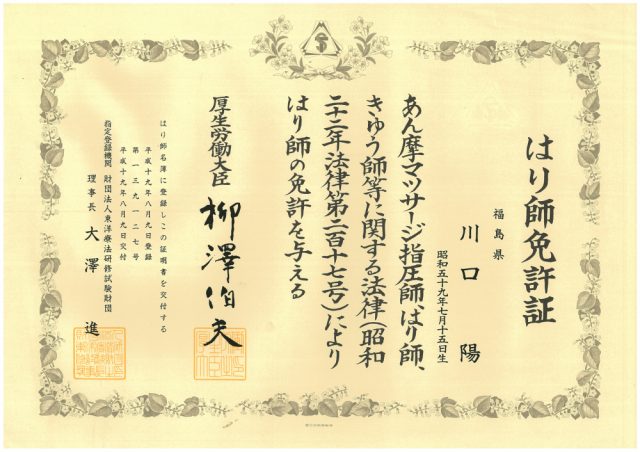 はり師免許証
福島県
川口 陽
昭和五十九年七月十五日生
あん摩マツサージ指圧師、はり師、
きゆう師等に関する法律（昭和
二十二年法律第二百十七号）により
はり師の免許を与える
厚生労働大臣 柳澤伯夫
はり師名簿に登録しこの証明書を交付する
平成十九年八月九日登録
第一三九一二七号
平成十九年八月九日交付
指定登録機関 財団法人東洋療法研修試験財団
理事長 大澤 進